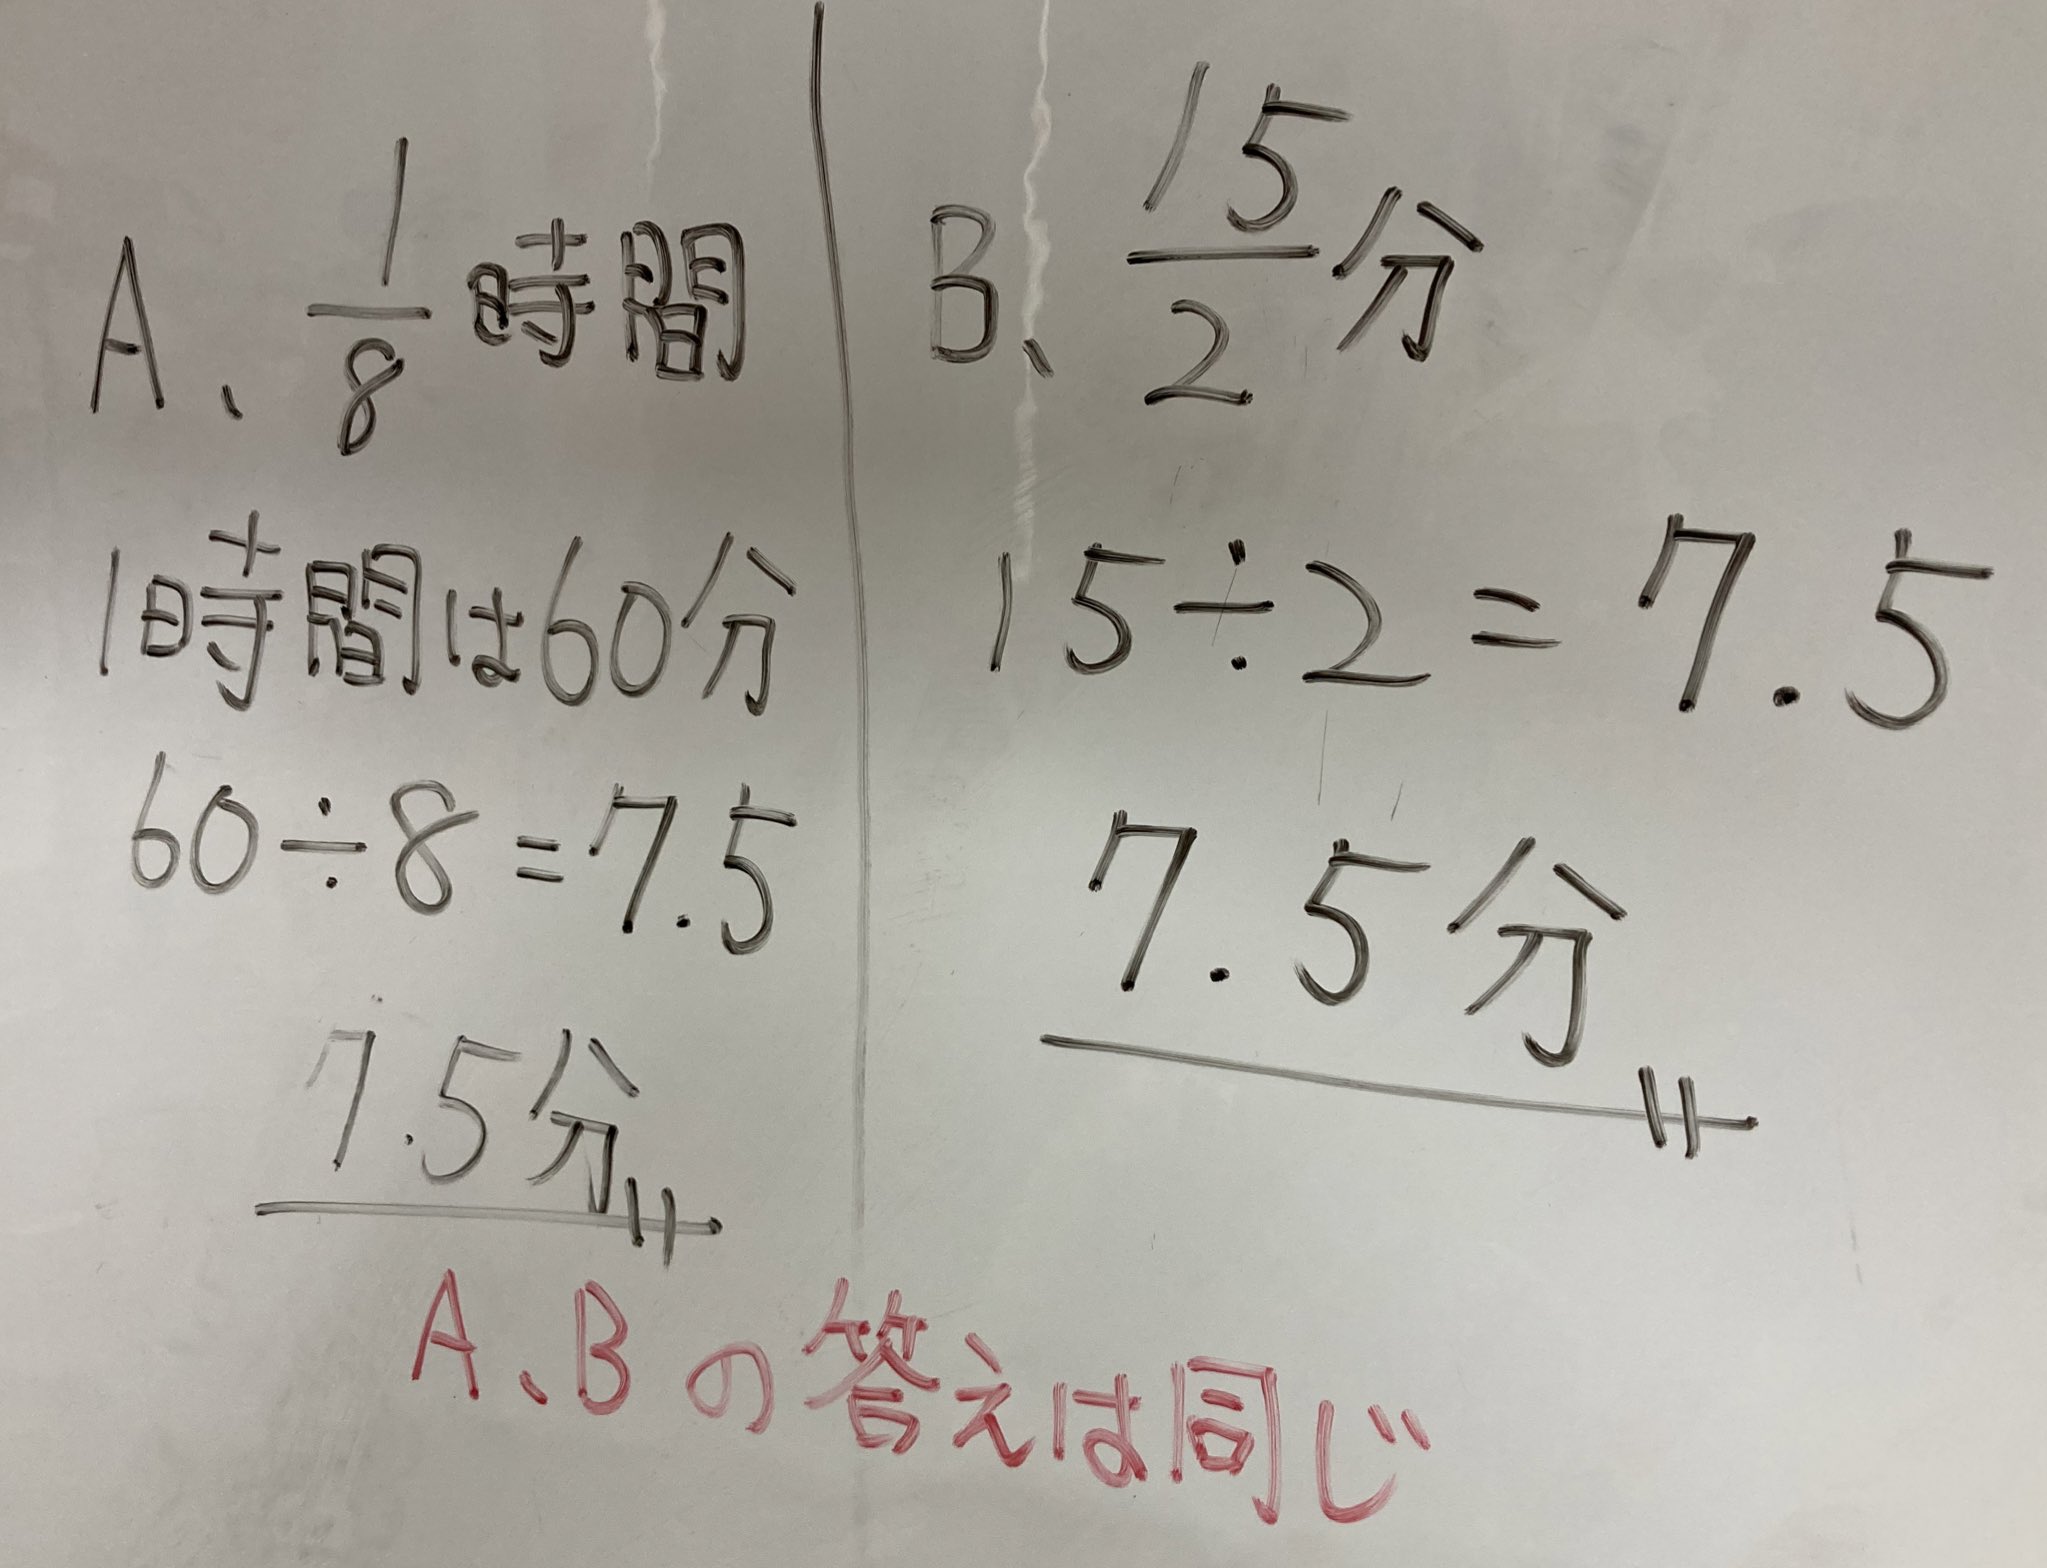 A、1/8時間
1時間は60分
60÷8=7.5
7.5分
B、15/2分
15÷2=7.5
7.5分
A、Bの答えは同じ